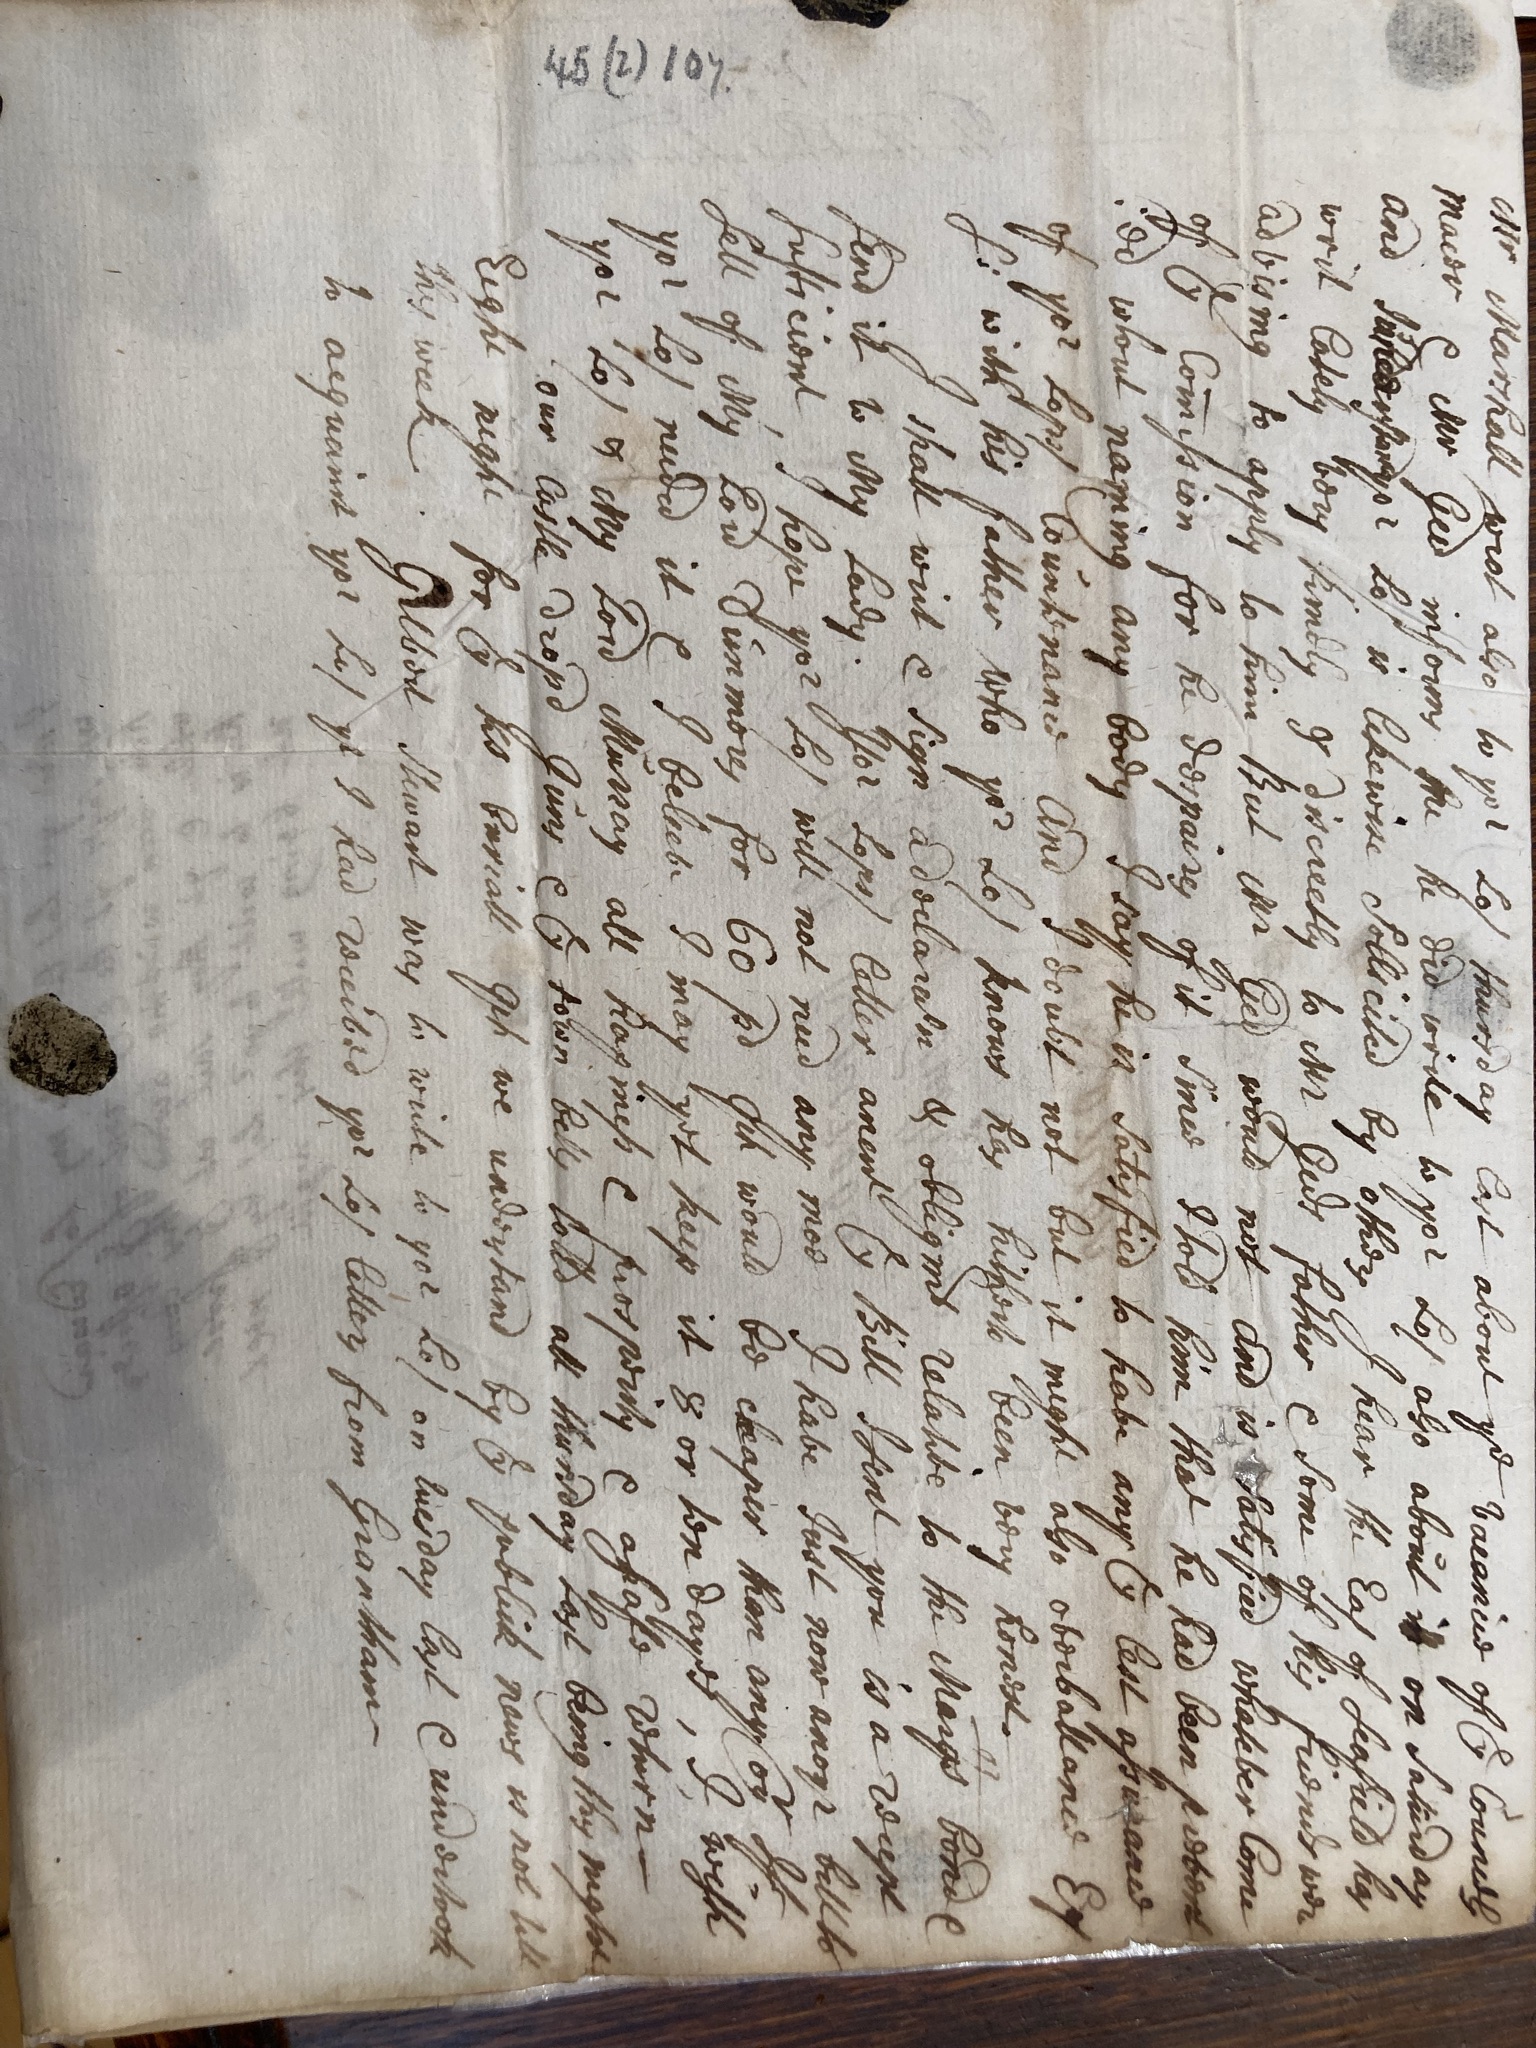 Mr Marshall wrot also to yor Lo/ thursday last about ye vacancie of ye Councels
macer & Mr Ged informs me he did write to yor Lo/ also about it on Saturday
and I understand yor Lo/ is likewise sollicited by others I hear the Ea/ of Seafield has
writ lately very kindly & discreetly to Mr Geds father & some of his friends wer
advising to apply to him But Mr Ged would not and is satisfied whatever Come
of ye Comission for he despaires of it since I told him that he had been prevent
:ed wtout naming any body I say he is satisfied to have any ye lest assurance
of yor Lops/ Countenance And I doubt not but it might also overballance Ea/
S: with his father who yor Lo/ knows has hitherto been very honest.
I shall writ & sign a declara'n & obligmt relative to the Marqs bond &
send it to My Lady. Yor Lops/ letter anent ye Bill I sent you is a recept
sufficient, I hope yor Lo/ will not need any moe I have Just now anoyr bill to
sell of My Lord Dunmores for 60 pd qch would be cheaper than any oyr If
yor Lo/ needed it & I beleeve I may yet keep it 8 or ten dayes, I wish
yor Lo/ & My Lord Murray all hapiness & prosperity & a safe return
our Castle drop'd Guns & ye town bells toll'd all thursday last being this night
Eight night for ye Ks buriall qch we understand by ye publick news is not till
this week. Gilbert Stewart was to write to yor Lo/ on tuesday last & undertook
to acquaint yor Lo/ yt I had received yor Lo/ letters from Grantham
45 (2) 107.